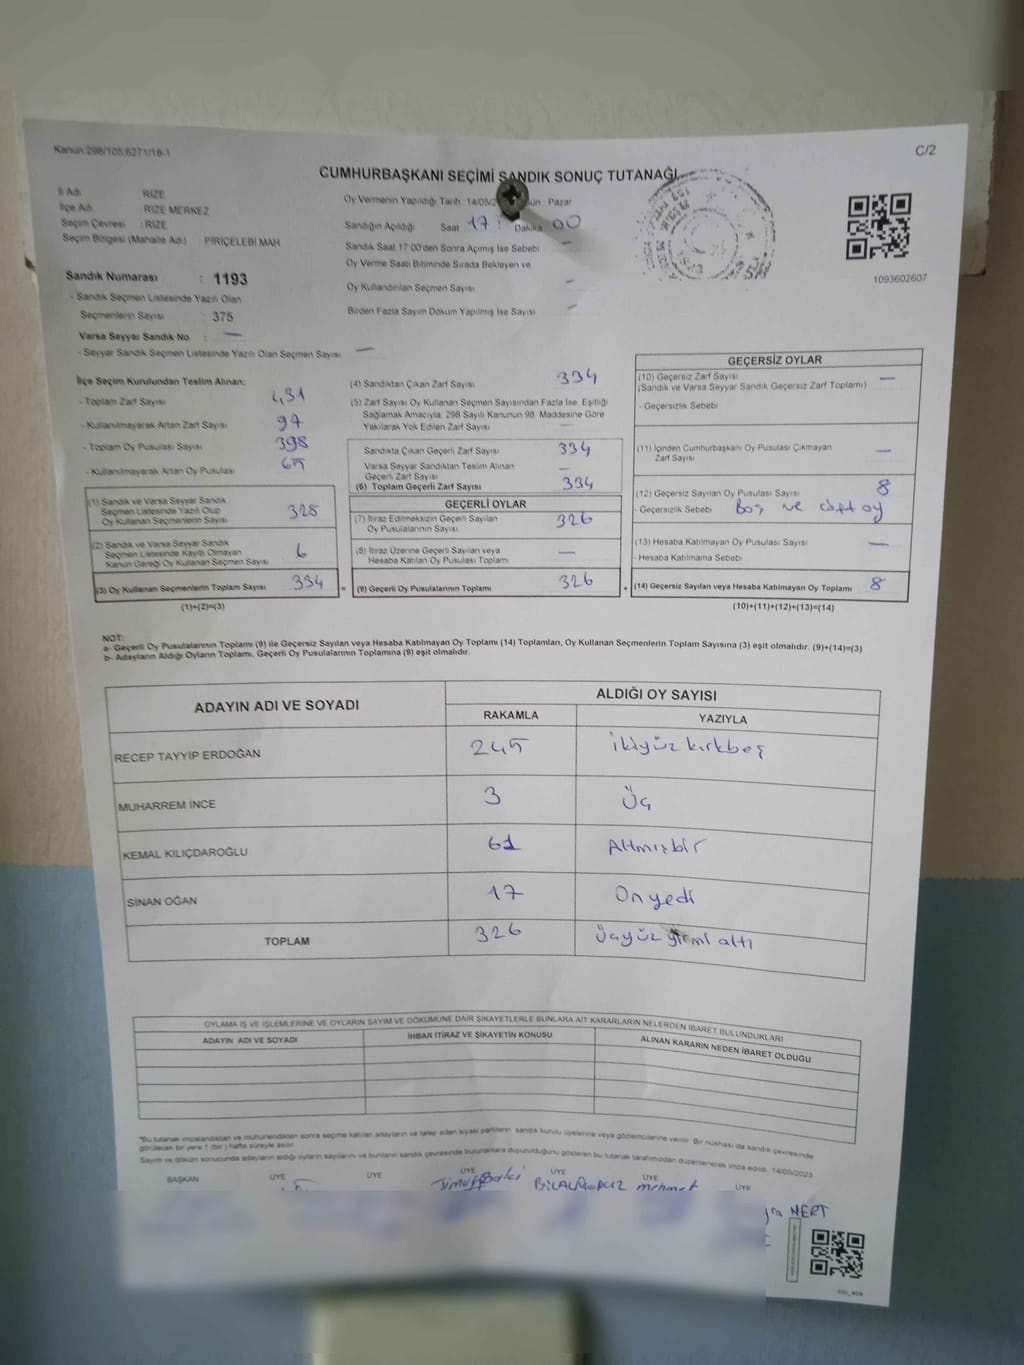 Kanun 298/105,6271/18-1
C/2
CUMHURBAŞKANI SEÇİMİ SANDIK SONUÇ TUTANAĞI
İl Adı RİZE
İlçe Adı RİZE MERKEZ
Seçim Çevresi : RİZE
Seçim Bölgesi (Mahalle Adı) : PİRİÇELEBİ MAH
Sandık Numarası : 1193
- Sandık Seçmen Listesinde Yazılı Olan
Seçmenlerin Sayısı : 375
Varsa Seyyar Sandık No : —
- Seyyar Sandık Seçmen Listesinde Yazılı Olan Seçmen Sayısı —
Oy Vermenin Yapıldığı Tarih :14/05/2 Gün : Pazar
Sandığın Açıldığı Saat : 17 : Dakika 00
Sandık Saat 17:00'den Sonra Açımış İse Sebebi —
Oy Verme Saati Bitiminde Sırada Bekleyen ve
Oy Kullandırılan Seçmen Sayısı —
Birden Fazla Sayım Döküm Yapılmış İse Sayısı —
1093602607
İlçe Seçim Kurulundan Teslim Alınan;
- Toplam Zarf Sayısı 431
- Kullanılmayarak Artan Zarf Sayısı 97
- Toplam Oy Pusulası Sayısı 398
- Kullanılmayarak Artan Oy Pusulası
(1) Sandık ve Varsa Seyyar Sandık
Seçmen Listesinde Yazılı Olup
Oy Kullanan Seçmenlerin Sayısı 328
(2) Sandık ve Varsa Seyyar Sandık
Seçmen Listesinde Kayıtlı Olmayan
Kanun Gereği Oy Kullanan Seçmen Sayısı 6
(3) Oy Kullanan Seçmenlerin Toplam Sayısı 334 =
(1)+(2)=(3)
(4) Sandıktan Çıkan Zarf Sayısı 334
(5) Zarf Sayısı Oy Kullanan Seçmen Sayısından Fazla İse, Eşitliği
Sağlamak Amacıyla, 298 Sayılı Kanunun 98. Maddesine Göre
Yakılarak Yok Edilen Zarf Sayısı —
Sandıkta Çıkan Geçerli Zarf Sayısı 334
Varsa Seyyar Sandıktan Teslim Alınan
Geçerli Zarf Sayısı —
(6) Toplam Geçerli Zarf Sayısı 334
GEÇERLİ OYLAR
(7) İtiraz Edilmeksizin Geçerli Sayılan
Oy Pusulalarının Sayısı 326
(8) İtiraz Üzerine Geçerli Sayılan veya
Hesaba Katılan Oy Pusulası Toplamı —
(9) Geçerli Oy Pusulalarının Toplamı 326 +
GEÇERSİZ OYLAR
(10) Geçersiz Zarf Sayısı —
(Sandık ve Varsa Seyyar Sandık Geçersiz Zarf Toplamı)
- Geçersizlik Sebebi
(11) İçinden Cumhurbaşkanı Oy Pusulası Çıkmayan
Zarf Sayısı —
(12) Geçersiz Sayılan Oy Pusulası Sayısı 8
- Geçersizlik Sebebi Boş ve çift oy
(13) Hesaba Katılmayan Oy Pusulası Sayısı —
- Hesaba Katılmama Sebebi
(14) Geçersiz Sayılan veya Hesaba Katılmayan Oy Toplamı 8
(10)+(11)+(12)+(13)=(14)
NOT:
a- Geçerli Oy Pusulalarının Toplamı (9) ile Geçersiz Sayılan veya Hesaba Katılmayan Oy Toplamı (14) Toplamları, Oy Kullanan Seçmenlerin Toplam Sayısına (3) eşit olmalıdır. (9)+(14)=(3)
b- Adayların Aldığı Oyların Toplamı, Geçerli Oy Pusulalarının Toplamına (9) eşit olmalıdır.
ADAYIN ADI VE SOYADI ALDIĞI OY SAYISI
RAKAMLA YAZIYLA
RECEP TAYYİP ERDOĞAN 245 İkiyüz kırkbeş
MUHARREM İNCE 3 Üç
KEMAL KILIÇDAROĞLU 61 Altmışbir
SİNAN OĞAN 17 Onyedi
TOPLAM 326 Üçyüz yirmi altı
OYLAMA İŞ VE İŞLEMLERİNE VE OYLARIN SAYIM VE DÖKÜMÜNE DAİR ŞİKAYETLERLE BUNLARA AİT KARARLARIN NELERDEN İBARET BULUNDUKLARI
ADAYIN ADI VE SOYADI İHBAR İTİRAZ VE ŞİKAYETİN KONUSU ALINAN KARARIN NEDEN İBARET OLDUĞU
"Bu tutanak imzalandıktan ve mühürlendikten sonra seçime katılan adayların ve talep eden siyasi partilerin sandık kurulu üyelerine veya gözlemcilerine verilir. Bir nüshası da sandık çevresinde
görülecek bir yere 1 (bir) hafta süreyle asılır.
Sayım ve döküm sonucunda adayların aldığı oyların sayılarını ve bunların sandık çevresinde bulunanlara duyurulduğunu gösteren bu tutanak tarafımızdan düzenlenerek imza edildi. 14/05/2023
BAŞKAN ÜYE ÜYE ÜYE ÜYE ÜYE ÜYE
mehmet
MERT